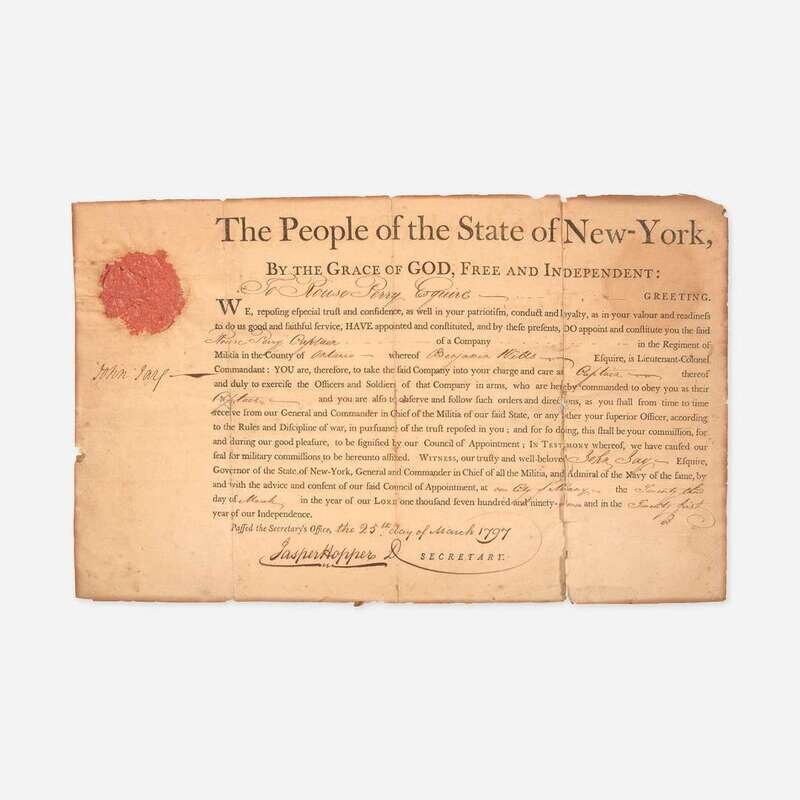 The People of the State of New-York,
BY THE GRACE OF GOD, FREE AND INDEPENDENT:
To Rouse Perry Esquire GREETING.
WE, reposing eſpecial truſt and confidence, as well in your patriotiſm, conduct and loyalty, as in your valour and readineſs
to do us good and faithful ſervice, HAVE appointed and conſtituted, and by theſe preſents, DO appoint and conſtitute you the ſaid
Rouse Perry Captain of a Company in the Regiment of
Militia in the County of Ontario whereof Benjamin Wells Eſquire, is Lieutenant-Colonel
John Jay
Commandant: YOU are, therefore, to take the ſaid Company into your charge and care as Captain thereof
and duly to exerciſe the Officers and Soldiers of that Company in arms, who are hereby commanded to obey you as their
Captain and you are alſo to obſerve and follow ſuch orders and directions, as you ſhall from time to time
receive from our General and Commander in Chief of the Militia of our ſaid State, or any other your ſuperior Officer, according
to the Rules and Diſcipline of war, in purſuance of the truſt repoſed in you; and for ſo doing, this ſhall be your commiſſion, for
and during our good pleaſure, to be ſignified by our Council of Appointment; IN TESTIMONY whereof, we have cauſed our
ſeal for military commiſſions to be hereunto affixed. WITNESS, our truſty and well-beloved John Jay Eſquire,
Governor of the State of New-York, General and Commander in Chief of all the Militia, and Admiral of the Navy of the ſame, by
and with the advice and conſent of our ſaid Council of Appointment, at our City of Albany the
day of March in the year of our LORD one thouſand ſeven hundred and ninety-seven and in the Twenty first
year of our Independence.
Paſſed the Secretary's Office, the 25th day of March 1797
Jasper Hopper D SECRETARY.